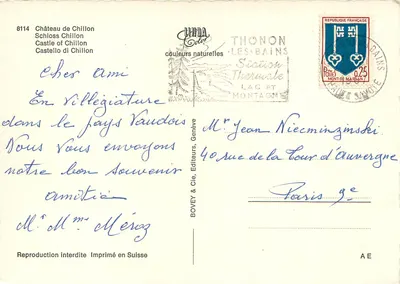 8114 Château de Chillon
Schloss Chillon
Castle of Chillon
Castello di Chillon
couleurs naturelles
THONON
LES-BAINS
Station
Thermale
LAC ET
MONTAGNE
REPUBLIQUE FRANÇAISE
POSTES
0,25
MONT-DE-MARSAN
Cher Ami
En Villégiature
dans le pays Vaudois
Nous Vous envoyons
notre bon souvenir
amitié
Mr Mme Méroz
BOVEY & Cie, Editeurs, Genève
Mr Jean Niecminzinski
40 rue de la Tour d'Auvergne
Paris 9e
Reproduction interdite Imprimé en Suisse
A E